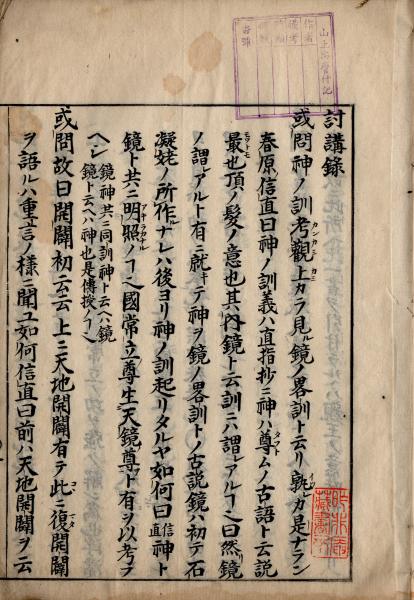 討講錄
或問神ノ訓考觀上カラ見ル鏡ノ畧訓ト云リ孰カ是ナラン
春原信直曰神ノ訓義ハ直指抄ニ神ハ尊ムノ古語ト云説
最也頂ノ髮ノ意也其内鏡ト云訓ニハ謂レアルヿ也曰然鏡
ノ謂レアルト有ニ就キテ神ヲ鏡ノ畧訓トノ古説鏡ハ初テ石
凝姥ノ所作ナレハ後ヨリ神ノ訓起リタルヤ如何曰信直神ト
鏡ト共ニ明照ノヿニ國常立尊生天鏡尊ト有ヲ以考ヲ
ヘシ鏡神共ニ同訓神ト云ヘハ鏡
鏡ト云ヘハ神也是傳授ノヿ也
或問故曰開闢初云云上ニ天地開闢有テ此ニ復開闢
ヲ語ルハ重言ノ様ニ聞ユ如何信直曰前ハ天地開闢ヲ云